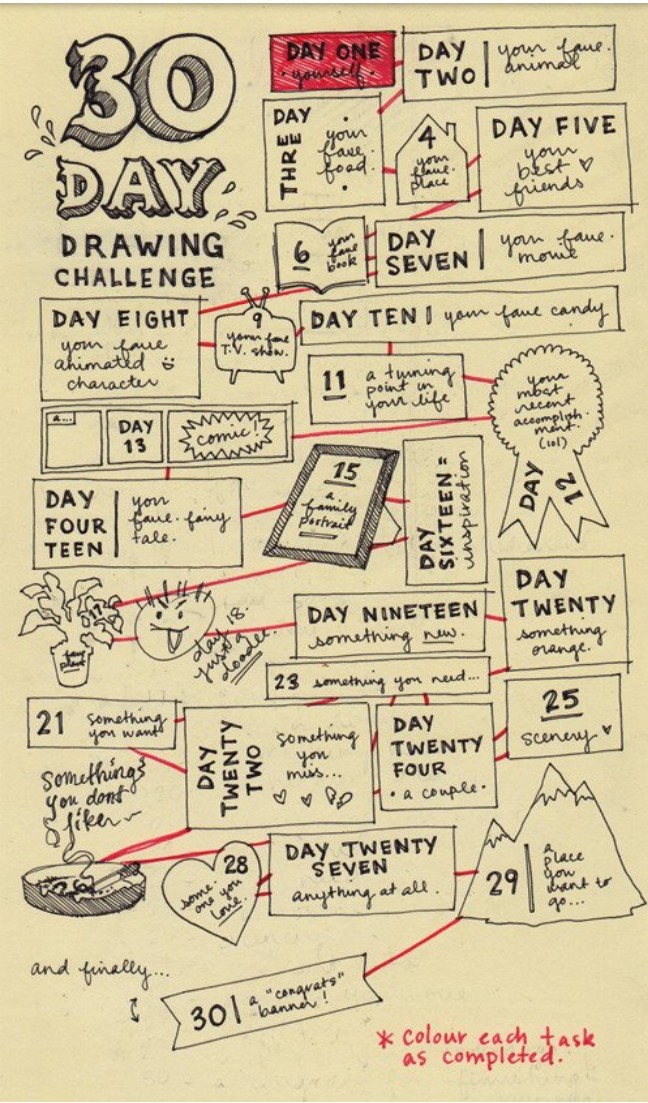 30
DAY
DRAWING
CHALLENGE
DAY ONE
• yourself •
DAY
TWO
your fave.
animal
DAY
THREE
your
fave
food.
4
your
fave
place
DAY FIVE
your
best
friends
6
your
fave
book
DAY
SEVEN
your fave.
movie
DAY EIGHT
your fave
animated
character
9
your fave
T.V. show.
DAY TEN
your fave candy
11
a turning
point in
your life
your
most
recent
accomplish-
ment.
(lol)
DAY
12
a...
DAY
13
comic!
DAY
FOUR
TEEN
your
fave. fairy
tale.
15
a
family
portrait
DAY
SIXTEEN =
inspiration
17
plant
day 18.
just a
doodle.
DAY NINETEEN
something new.
DAY
TWENTY
something
orange.
21
something
you want
DAY
TWENTY
TWO
something
you
miss...
23 something you need...
DAY
TWENTY
FOUR
• a couple •
25
scenery
something
you dont
like
26
DAY TWENTY
SEVEN
anything at all.
28
some
one you
love.
29
a
place
you
want to
go...
and finally...
30
a "congrats"
banner!
* colour each task
as completed.